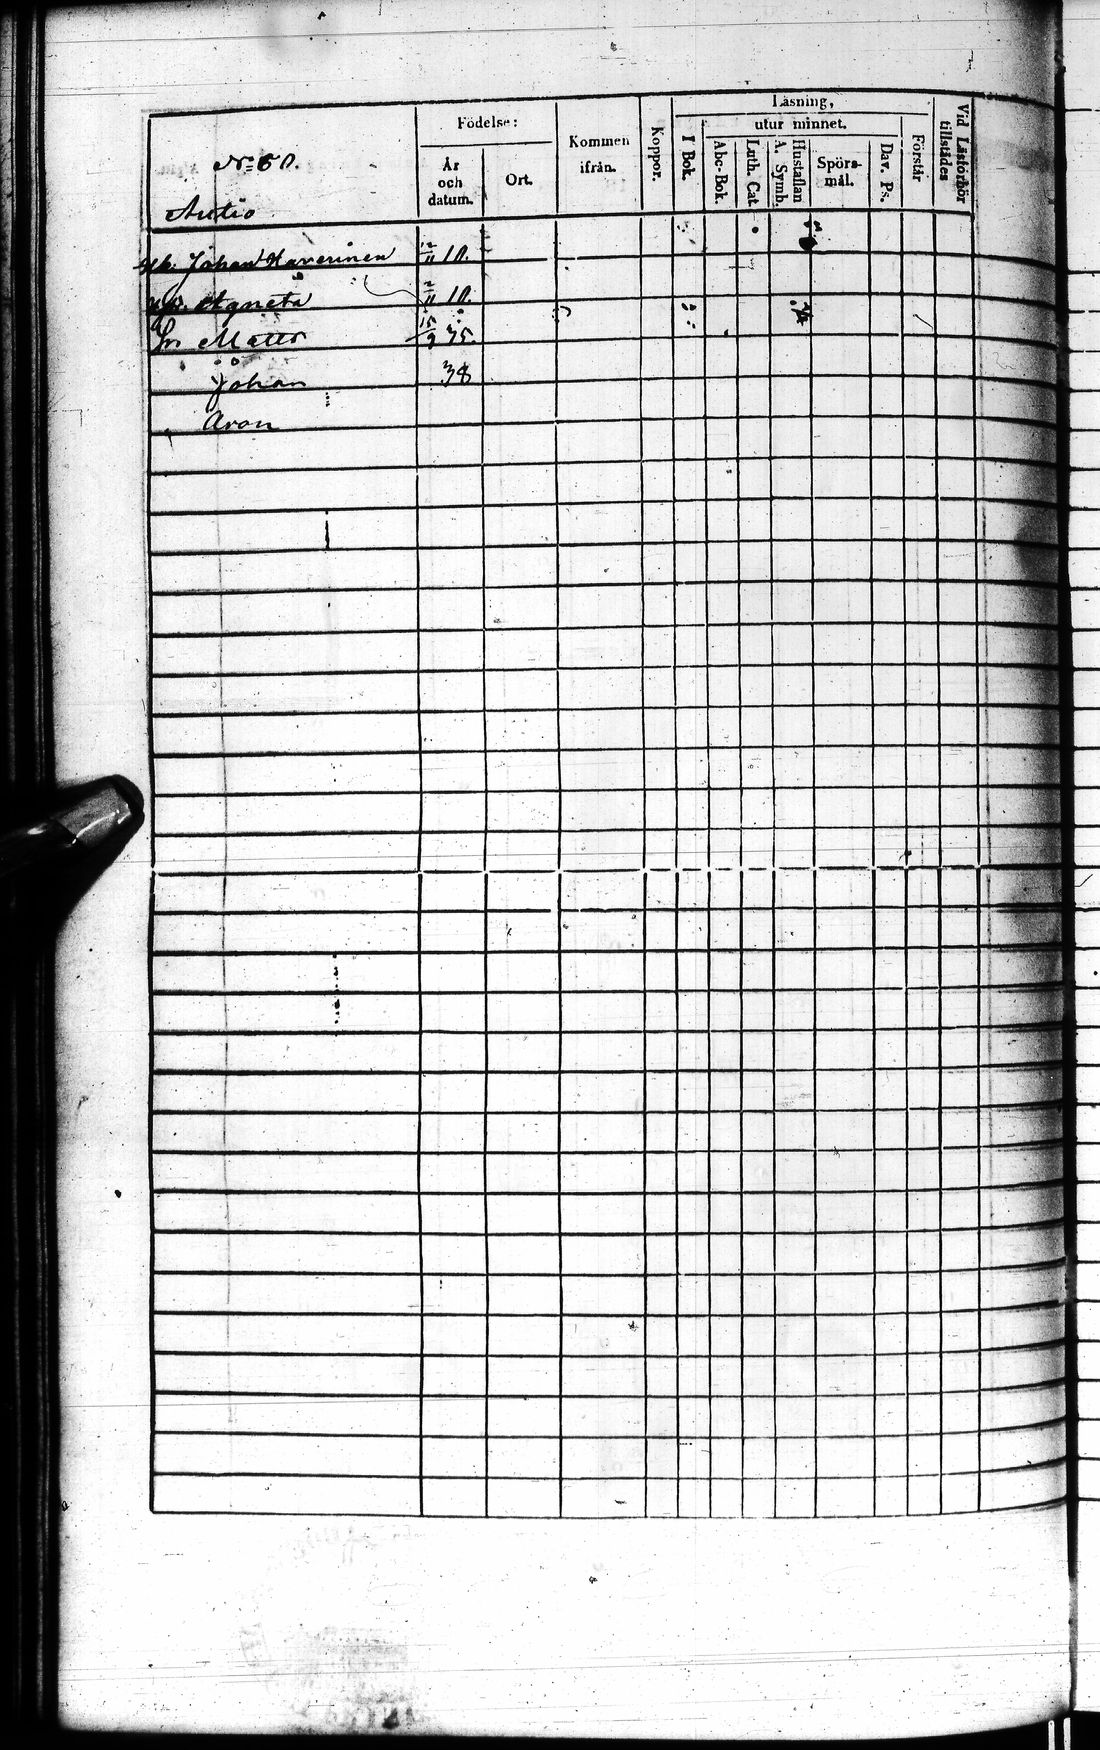 Födelse:
År och datum.
Ort.
Kommen ifrån.
Koppor.
Läsning,
I Bok.
utur minnet.
Abc-Bok.
Luth. Cat.
Hustaflan A. Symb.
Spörs-mål.
Dav. Ps.
Förstår
Vid Läsförhör tillstädes
N:o 60.
Autio
Johan Haverinen 12/11 10.
Agneta 2/11 10.
Sn Matts 15/9 35.
Johan 38
Aron